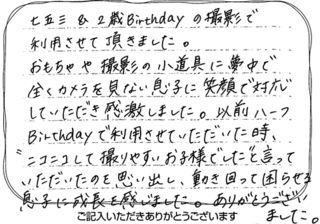 七五三 & 2歳Birthdayの撮影で
利用させて頂きました。
おもちゃや撮影の小道具に夢中で
全くカメラを見ない息子に笑顔で対応
していただき感激しました。以前ハーフ
Birthdayで利用させていただいた時、
"ニコニコして撮りやすいお子様でした"と言って
いただいたのを思い出し、動き回って困らせる
息子に成長を感じました。ありがとうござい
ました。
ご記入いただきありがとうございます